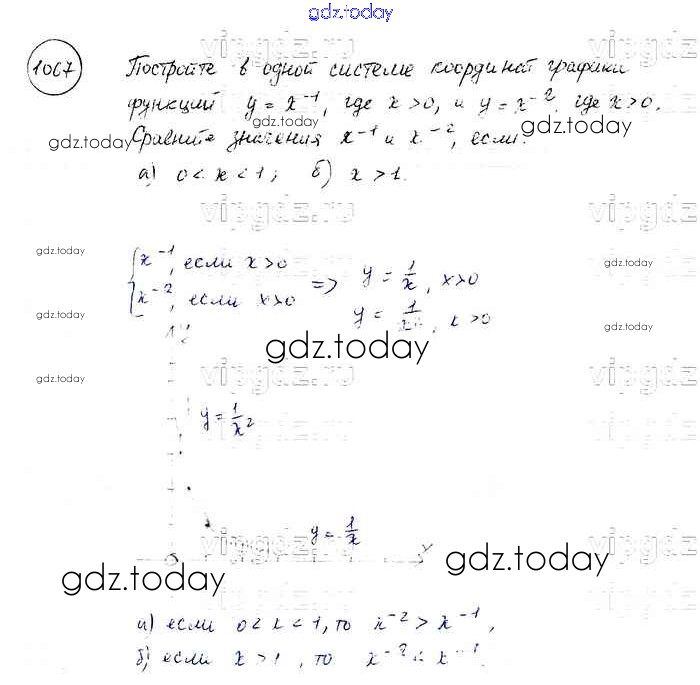 gdz.today
1067
Постройте в одной системе координат графики
функций y = x⁻¹, где x > 0, и y = x⁻², где x > 0.
Сравните значения x⁻¹ и x⁻², если:
а) 0 < x < 1; б) x > 1.
x⁻¹, если x > 0
x⁻², если x > 0
=> y = 1/x, x > 0
y = 1/x², x > 0
y
y = 1/x²
y = 1/x
0
x
а) если 0 < x < 1, то x⁻² > x⁻¹,
б) если x > 1, то x⁻² < x⁻¹.
gdz.today
gdz.today
gdz.today
gdz.today
gdz.today
gdz.today
gdz.today
gdz.today
gdz.today
gdz.today
gdz.today
vipgdz.ru
vipgdz.ru
vipgdz.ru
vipgdz.ru
vipgdz.ru